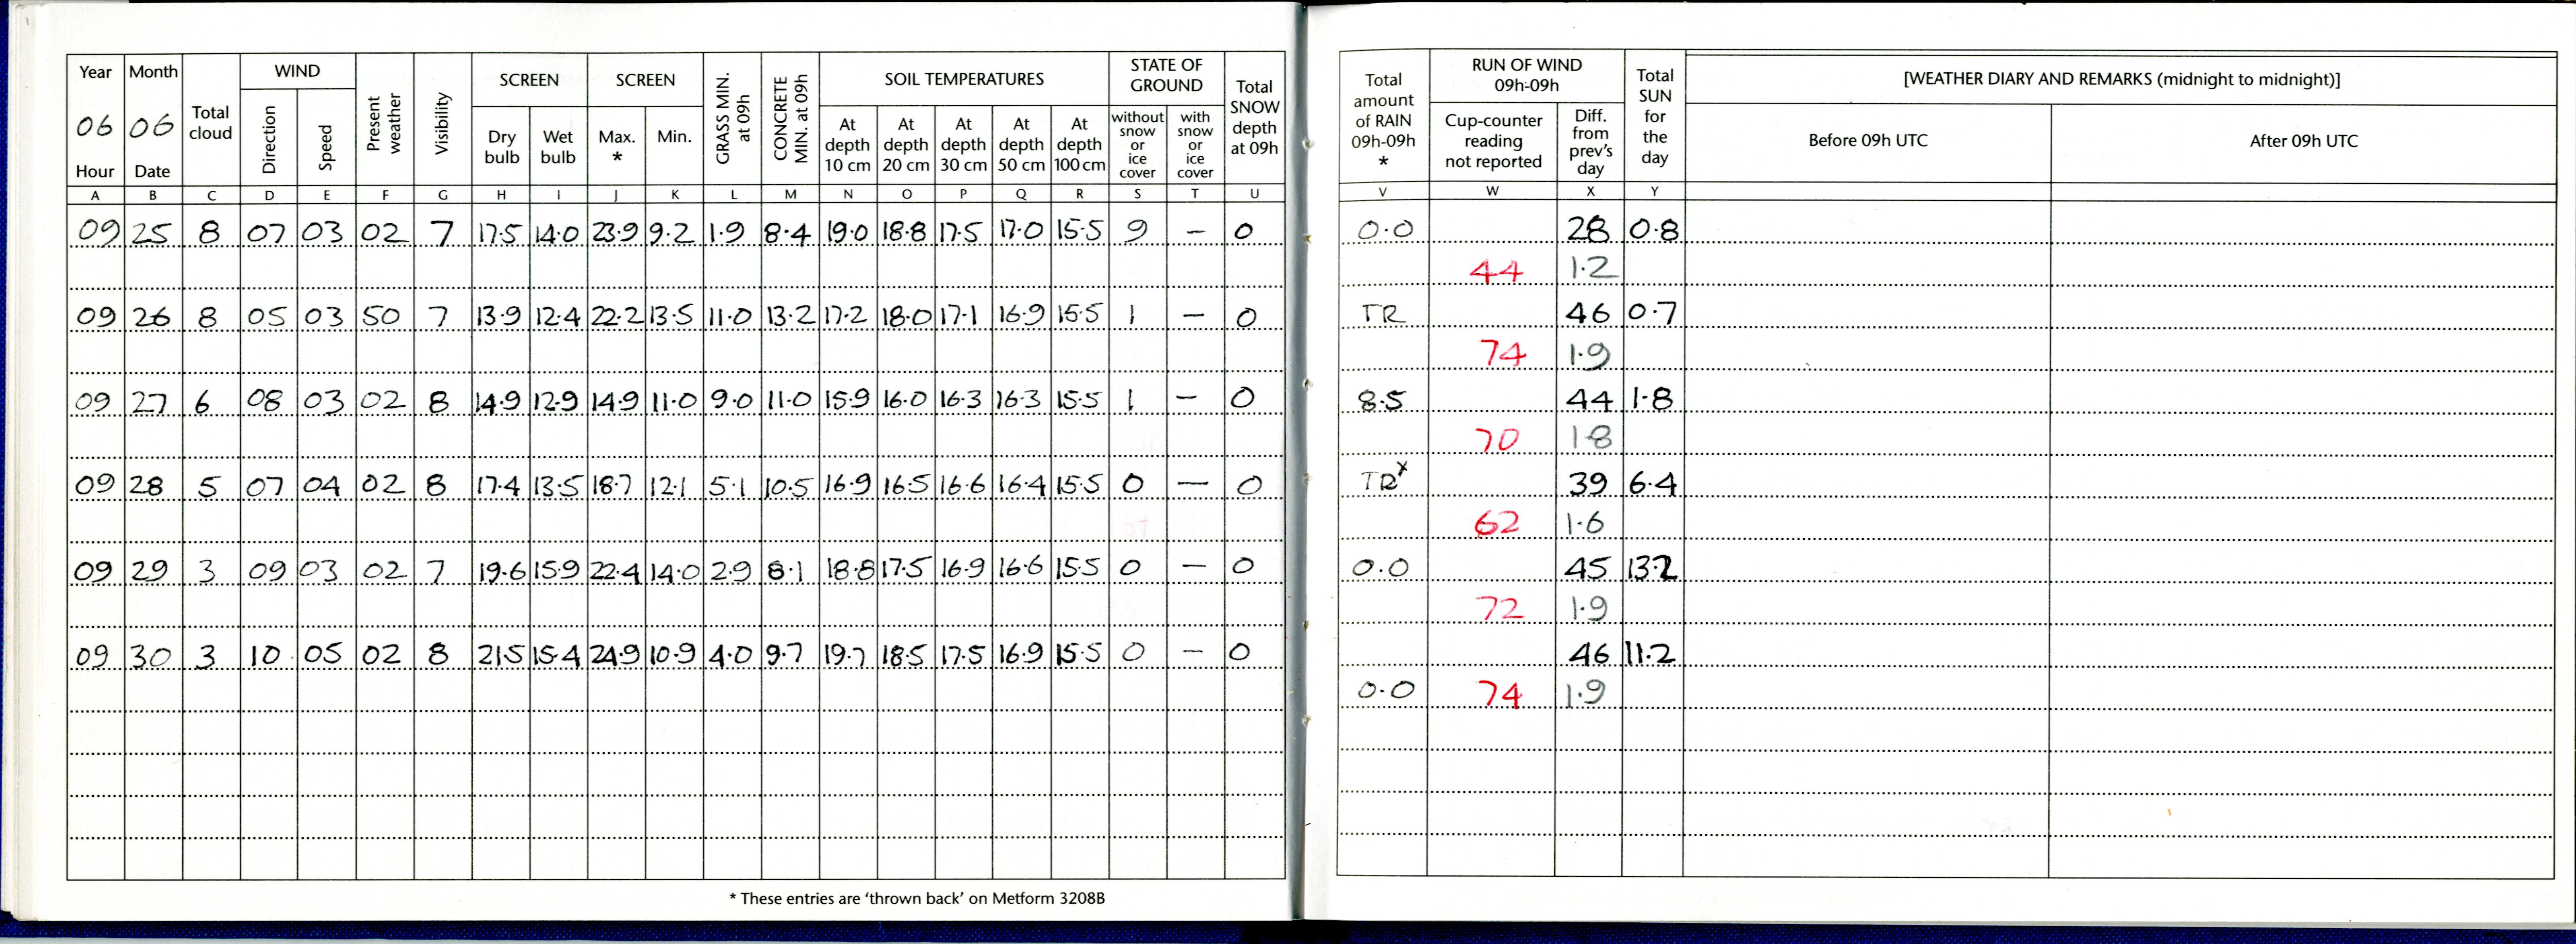 Year Month Total cloud WIND Present weather Visibility SCREEN SCREEN GRASS MIN. at 09h CONCRETE MIN. at 09h SOIL TEMPERATURES STATE OF GROUND Total SNOW depth at 09h Total amount of RAIN 09h-09h * RUN OF WIND 09h-09h Total SUN for the day [WEATHER DIARY AND REMARKS (midnight to midnight)]
06 06 Direction Speed Dry bulb Wet bulb Max. * Min. At depth 10 cm At depth 20 cm At depth 30 cm At depth 50 cm At depth 100 cm without snow or ice cover with snow or ice cover Cup-counter reading not reported Diff. from prev's day Before 09h UTC After 09h UTC
Hour Date
A B C D E F G H I J K L M N O P Q R S T U V W X Y
09 25 8 07 03 02 7 17.5 14.0 23.9 9.2 1.9 8.4 19.0 18.8 17.5 17.0 15.5 9 – 0 0.0 28 0.8
44 1.2
09 26 8 05 03 50 7 13.9 12.4 22.2 13.5 11.0 13.2 17.2 18.0 17.1 16.9 15.5 1 – 0 TR 46 0.7
74 1.9
09 27 6 08 03 02 8 14.9 12.9 14.9 11.0 9.0 11.0 15.9 16.0 16.3 16.3 15.5 1 – 0 8.5 44 1.8
70 1.8
09 28 5 07 04 02 8 17.4 13.5 18.7 12.1 5.1 10.5 16.9 16.5 16.6 16.4 15.5 0 – 0 TR x 39 6.4
62 1.6
09 29 3 09 03 02 7 19.6 15.9 22.4 14.0 2.9 8.1 18.8 17.5 16.9 16.6 15.5 0 – 0 0.0 45 13.2
72 1.9
09 30 3 10 05 02 8 21.5 15.4 24.9 10.9 4.0 9.7 19.7 18.5 17.5 16.9 15.5 0 – 0 46 11.2
0.0 74 1.9
* These entries are 'thrown back' on Metform 3208B